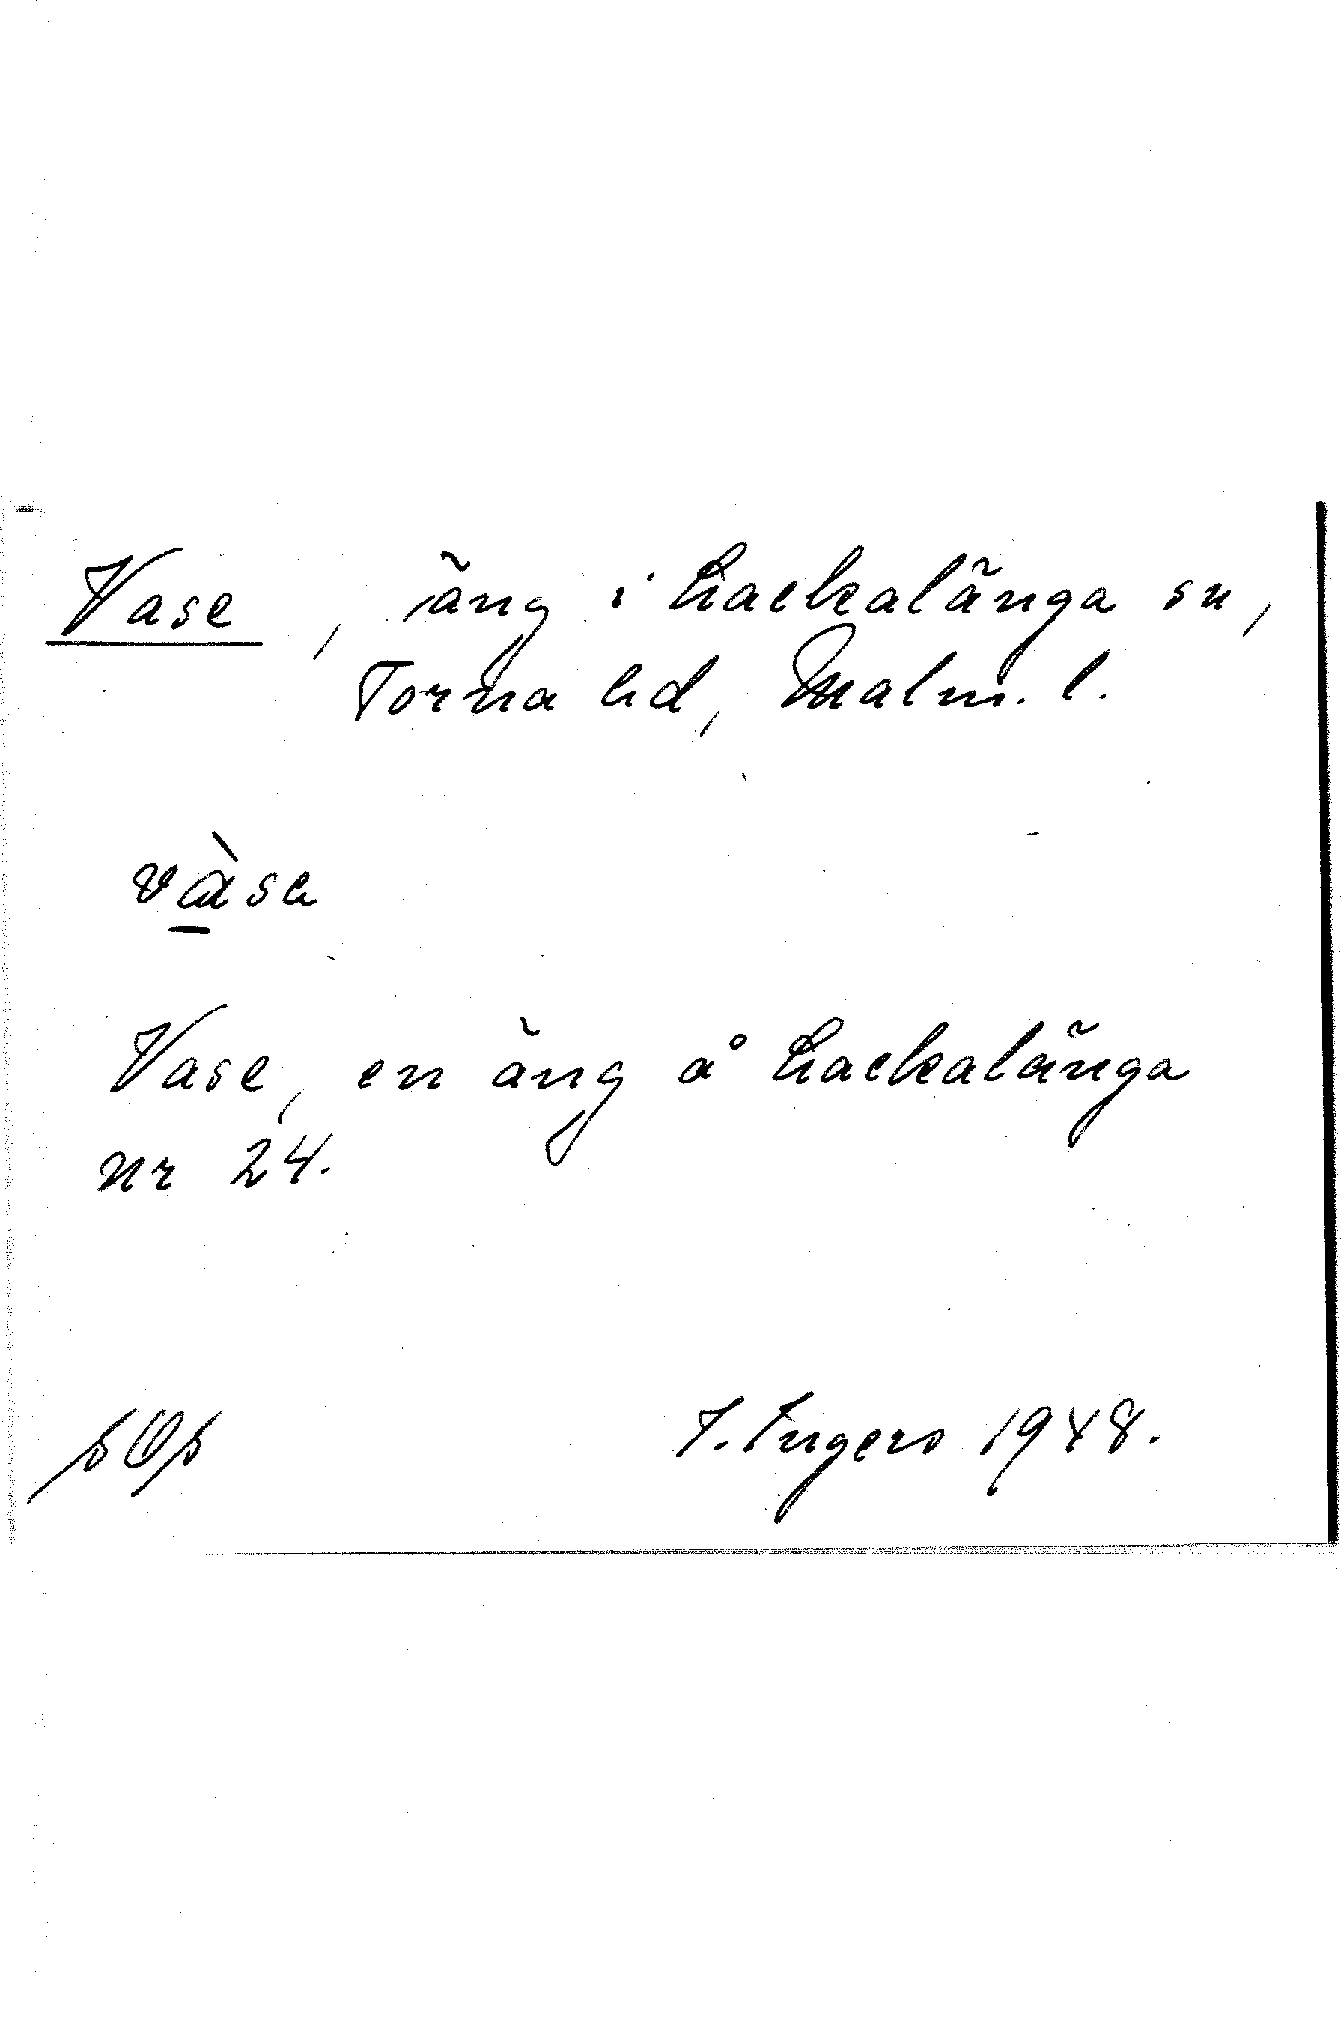 Vase, äng i Hackalänga sn,
Torna hd, Malm. l.
vàsa
Vase, en äng å Hackalänga
nr 24.
I. Ingers 1948.